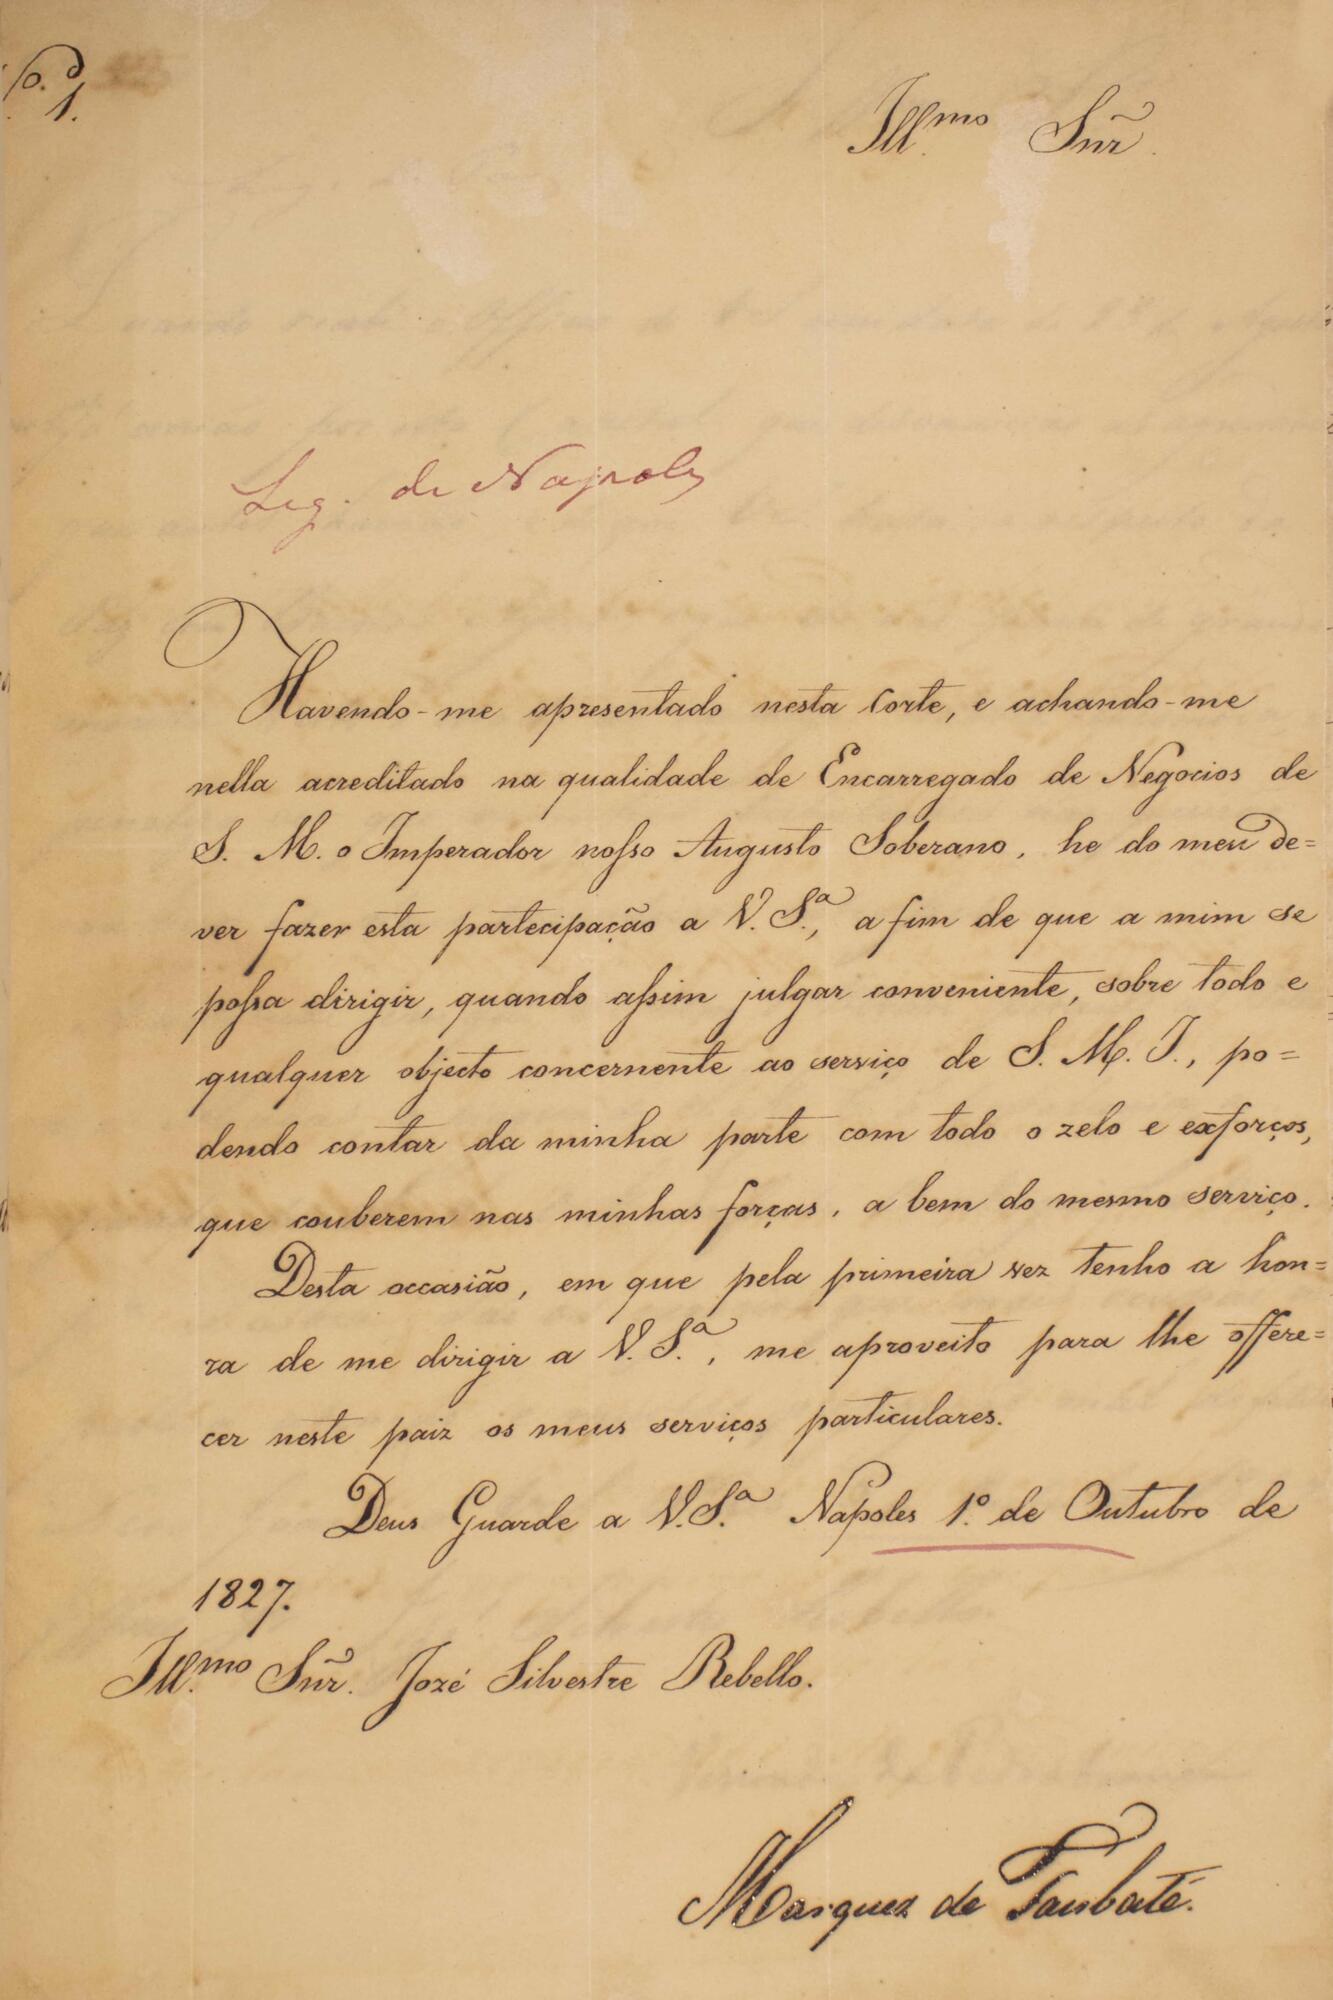 1.
Ill.mo Sñr.
Leg. de Napoles
Havendo-me apresentado nesta Corte, e achando-me
nella acreditado na qualidade de Encarregado de Negocios de
S. M. o Imperador nosso Augusto Soberano, he do meu de=
ver fazer esta partecipação a V. S.ª, a fim de que a mim se
possa dirigir, quando assim julgar conveniente, sobre todo e
qualquer objecto concernente ao serviço de S. M. I., po=
dendo contar da minha parte com todo o zelo e exforços,
que couberem nas minhas forças, a bem do mesmo serviço.
Desta occasião, em que pela primeira vez tenho a hon=
ra de me dirigir a V. S.ª, me aproveito para lhe offere=
cer neste paiz os meus serviços particulares.
Deus Guarde a V. S.ª Napoles 1.º de Outubro de
1827.
Ill.mo Sñr. Jozé Silvestre Rebello.
Marquez de Taubaté.